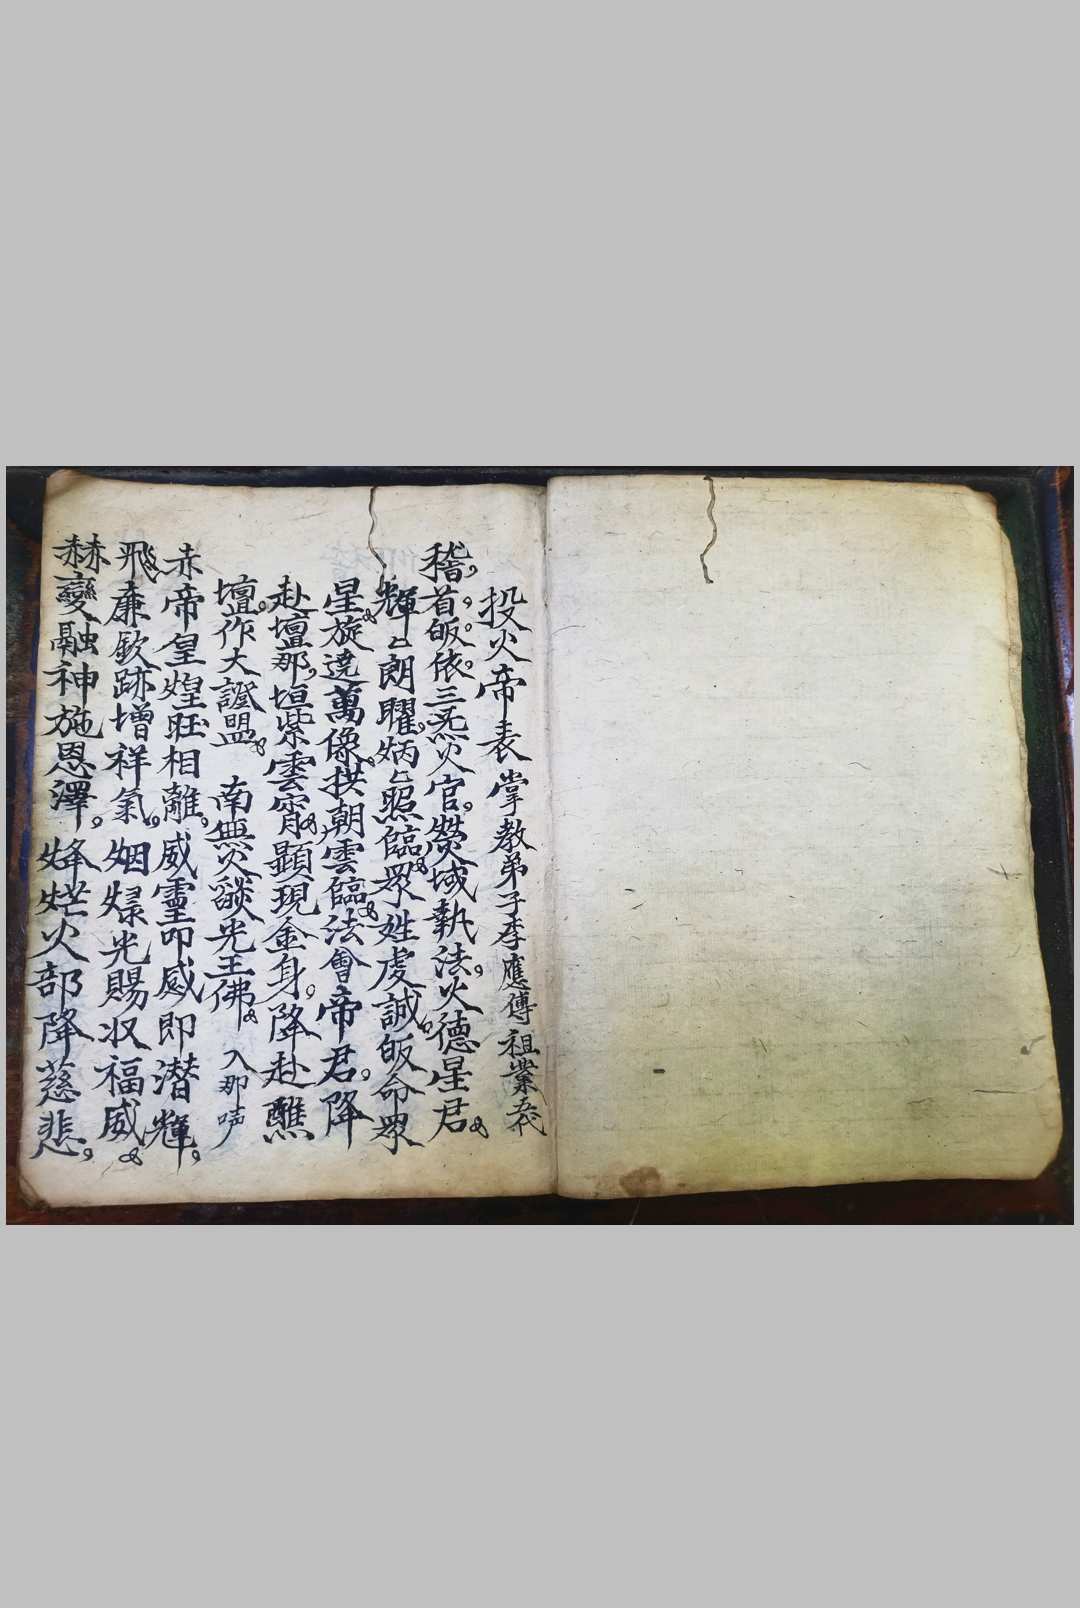 投火帝表 掌教弟子李應傳 祖業五代
稽首皈依三炁火官熒域執法火德星君
輝〻朗曜炳〻照臨眾姓虔誠皈命眾
星旋遶萬像拱朝雲臨法會帝君降
赴壇那垣紫雲霄顯現金身降赴醮
壇作大證盟 南無火燄光王佛 入那声
赤帝皇煌旺相離威靈叩感即潛輝
飛廉歛跡增祥氣烟光賜収福威
赫變融神施恩澤烽火部降慈悲